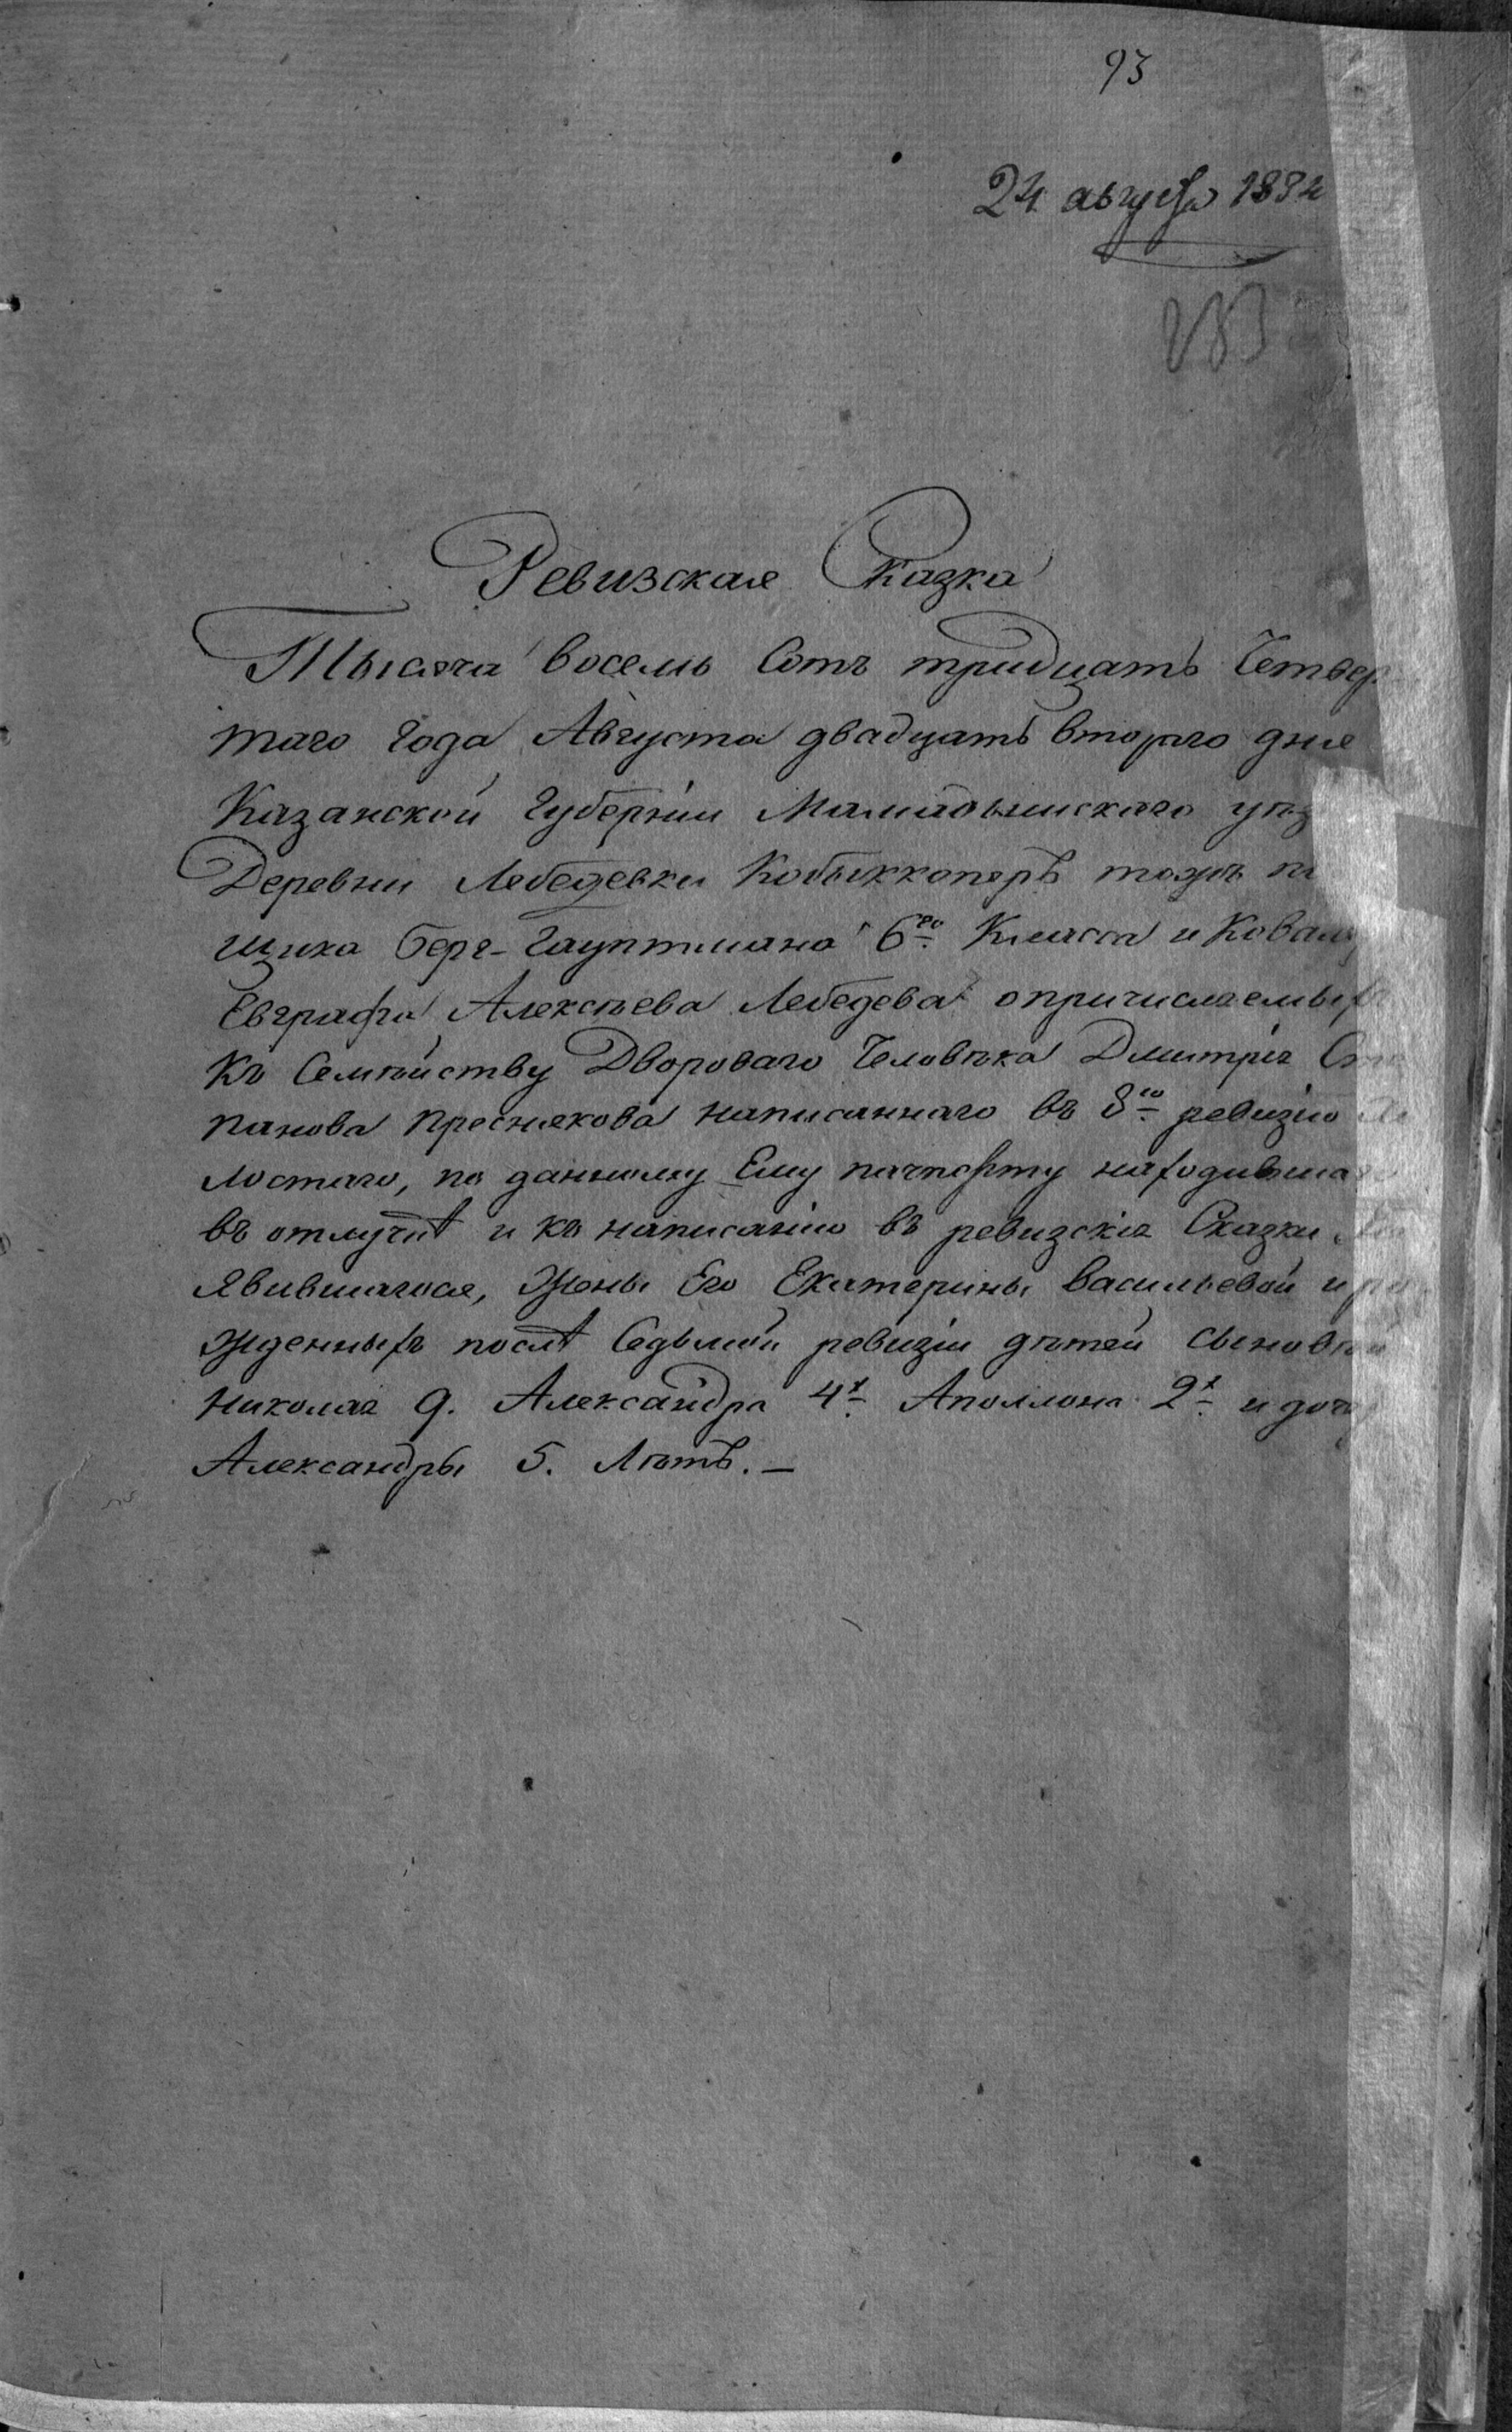 93
24 августа 1834
283
Ревизская Сказка
Тысяча восемь Сотъ тридцать Четвер
таго года Августа двадцать втораго дня
Казанской Губерніи Мамадышскаго уѣз
Деревни Лебедевки тожъ
щика Берг-Гауптмана 6го Класса и Кавале
Евграфа Алексѣева Лебедева о причисляемыхъ
Къ Семѣйству Двороваго Человѣка Дмитрія Сте
панова Преснякова написаннаго въ 8ю ревизію
лостаго, по данному Ему пачпорту находивша
въ отлучкѣ и къ написанію въ ревизскія Сказки
явившагося, Жены Его Екатерины Васильевой и ро
жденныхъ послѣ Седьмой ревизіи дѣтей сыновей
Николая 9. Александра 4х Аполлона 2х и доче
Александры 5. Лѣтъ. —